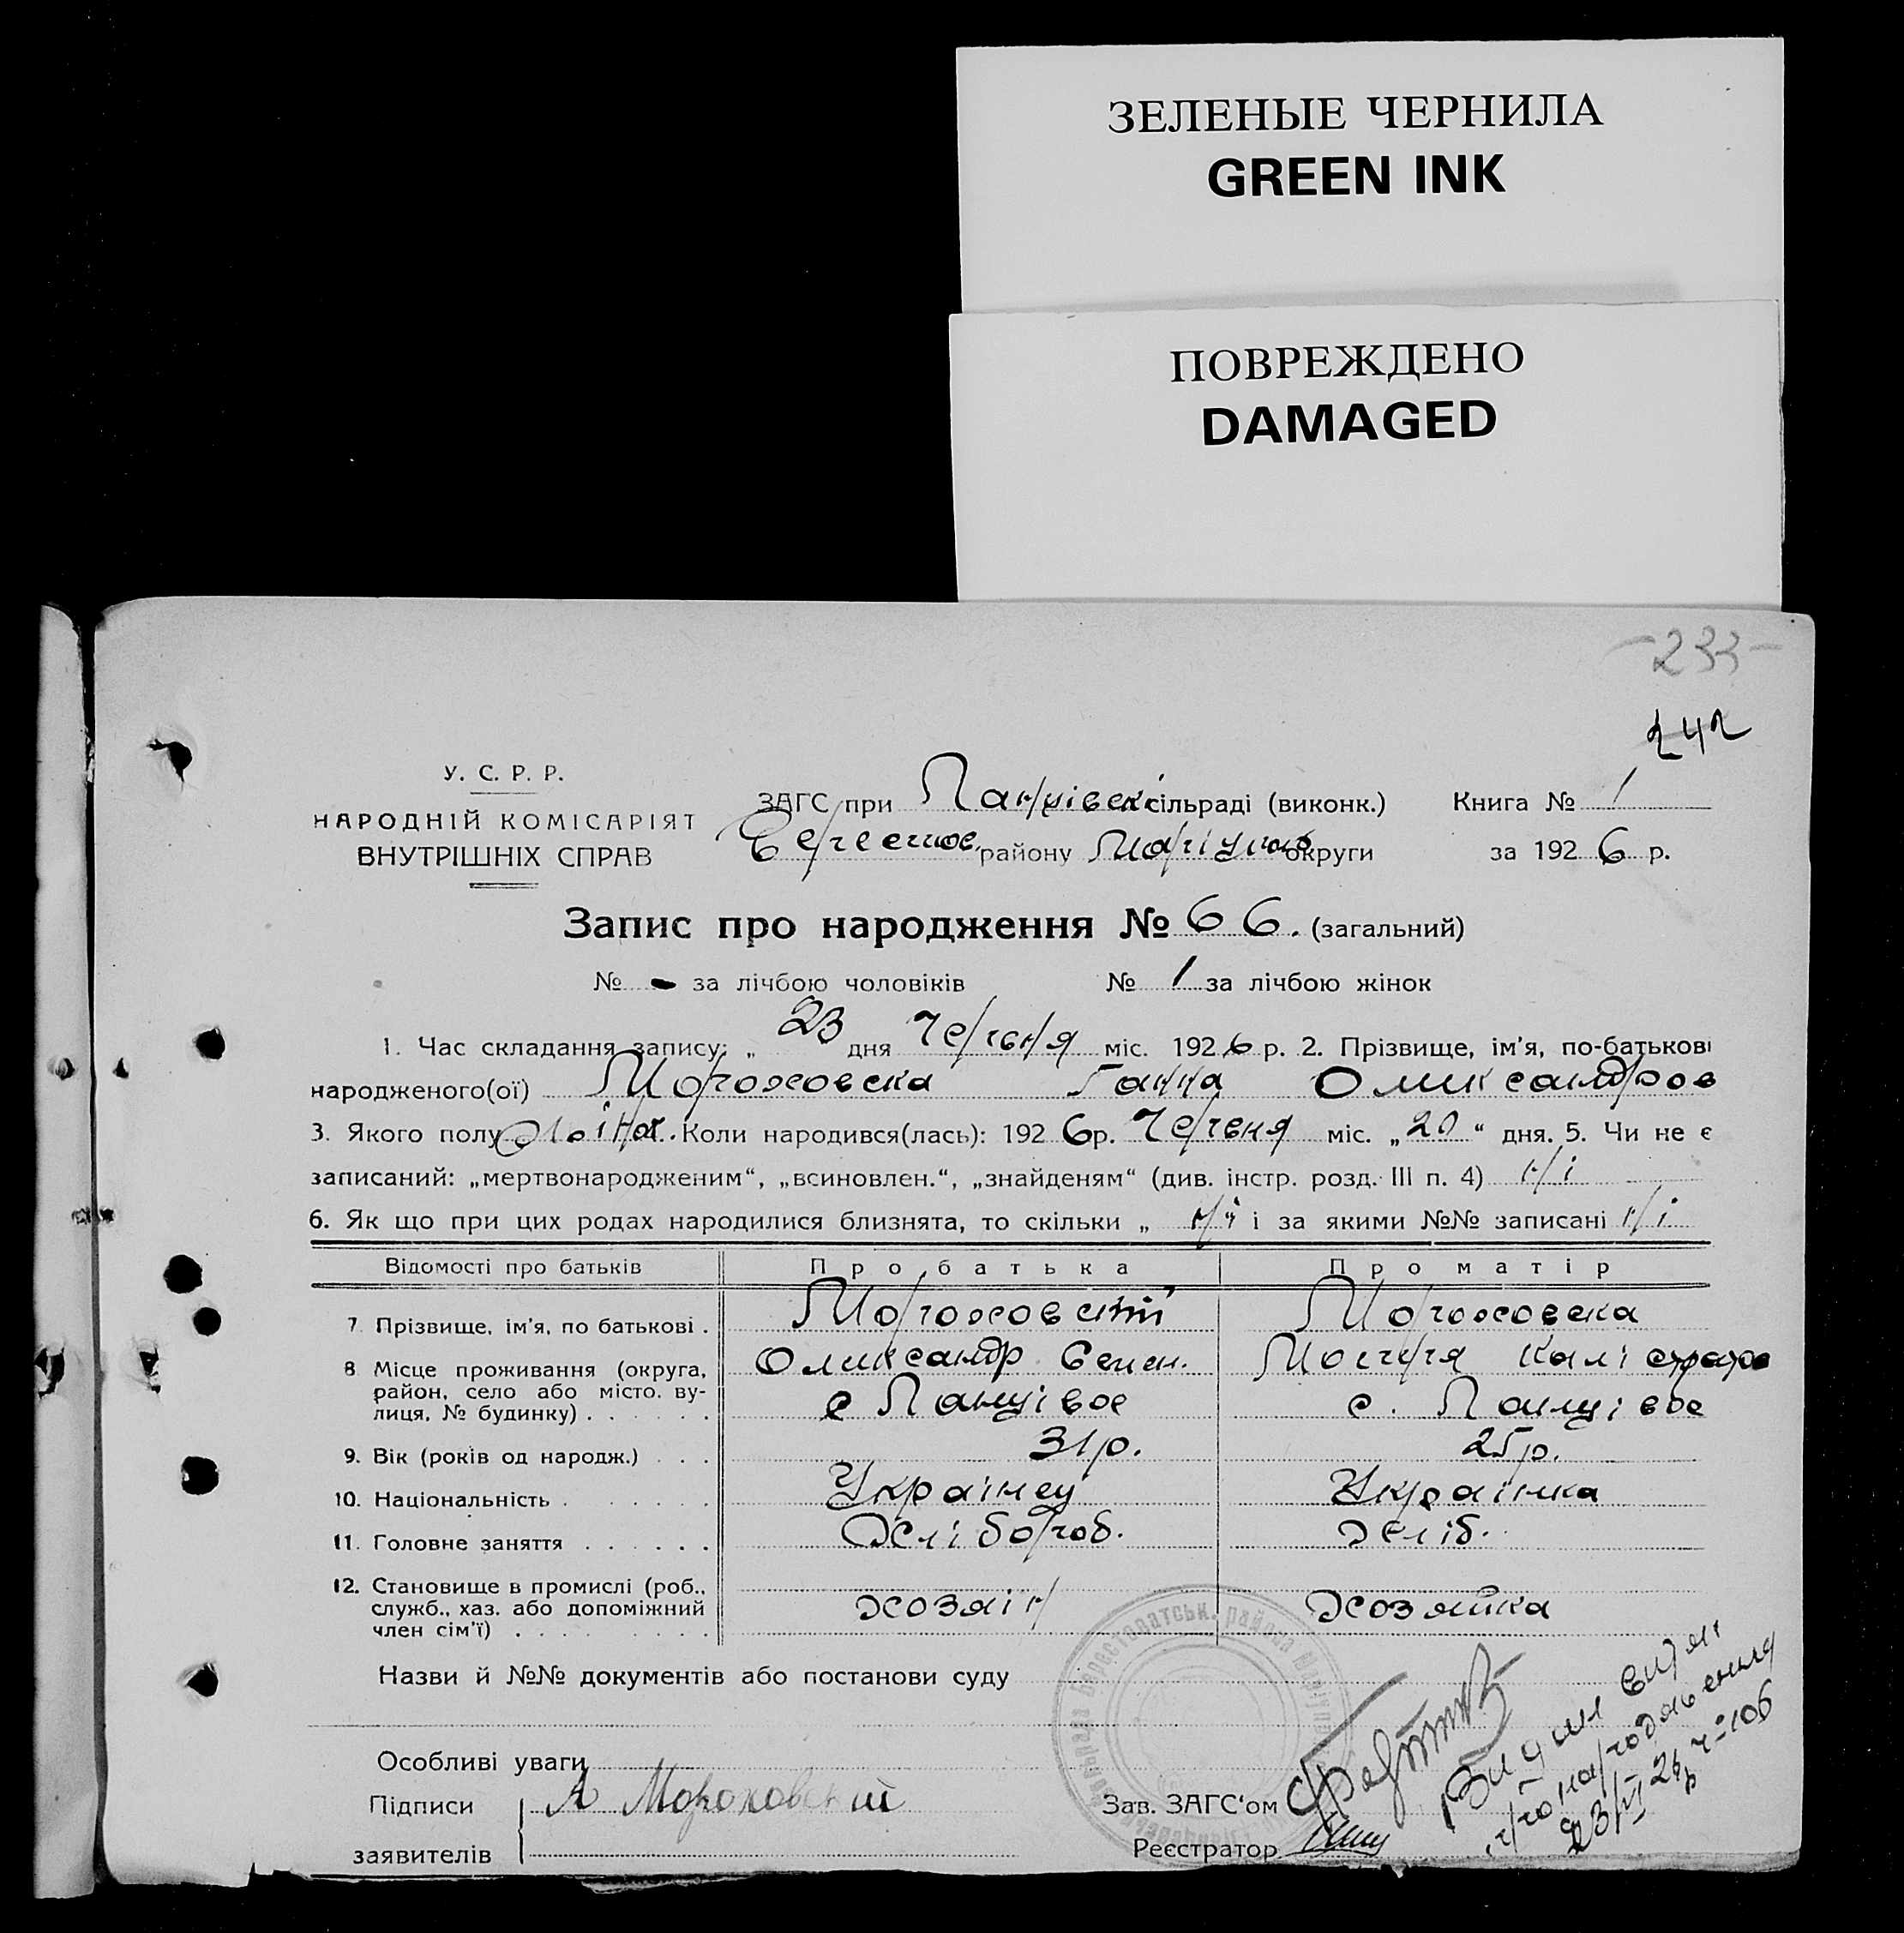 ЗЕЛЕНЫЕ ЧЕРНИЛА
GREEN INK
ПОВРЕЖДЕНО
DAMAGED
-233-
242
У. С. Р. Р.
НАРОДНІЙ КОМІСАРІЯТ
ВНУТРІШНІХ СПРАВ
ЗАГС при Панцівск. сільраді (виконк.) Книга № 1
району Маріуп. округи за 1926 р.
Запис про народження № 66. (загальний)
№ - за лічбою чоловіків № 1 за лічбою жінок
1. Час складання запису: „ 23 дня Червня міс. 1926 р. 2. Прізвище, ім'я, по-батькові
народженого(ої) Мороховска Ганна Оликсандров
3. Якого полу жіноч. Коли народився(лась): 1926 р. Червня міс. „20“ дня. 5. Чи не є
записаний: „мертвонародженим“, „всиновлен.“, „знайденям“ (див. інстр. розд. III п. 4) ні
6. Як що при цих родах народилися близнята, то скільки „ ні і за якими №№ записані ні
Відомості про батьків Про батька Про матір
7. Прізвище, ім'я, по батькові . Мороховский Мороховска
8 Місце проживання (округа, Оликсандр Семен. Калістратов
район, село або місто, ву- с Панцівое с. Панцівое
лиця, № будинку) . . . . . .
9. Вік (років од народж.) . . . 31 р. 25 р.
10. Національність . . . . . . . Українец Українка
11. Головне заняття . . . . . . Хлібороб. Хліб.
12. Становище в промислі (роб., хозяін хозяйка
служб., хаз. або допоміжний
член сім'ї) . . . . . . . . .
Назви й №№ документів або постанови суду
Особливі уваги
Підписи А Мороховский Зав. ЗАГС'ом
заявителів Реєстратор
Видан витяг
про народження
23/VI-26р ч=106